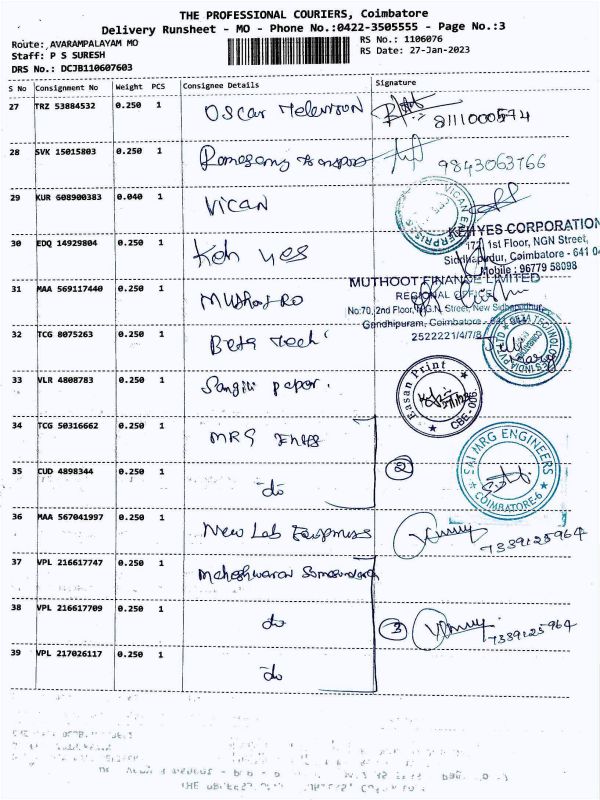 THE PROFESSIONAL COURIERS, Coimbatore
Delivery Runsheet - MO - Phone No.:0422-3505555 - Page No.:3
Route: AVARAMPALAYAM MO
RS No.: 1106076
Staff: P S SURESH
RS Date: 27-Jan-2023
DRS No.: DCJB110607603
S No Consignment No Weight PCS Consignee Details Signature
27 TRZ 53884532 0.250 1 Oscar Television 8111000574
28 SVK 15015803 0.250 1 9843063766
29 KUR 608900383 0.040 1 Vican
VICAN ENTERPRISES
30 EDQ 14929804 0.250 1 Keh Yes
KEH YES CORPORATION
1st Floor, NGN Street,
Coimbatore - 641 0
Mobile : 96779 58098
31 MAA 569117440 0.250 1 Muthoot RO
MUTHOOT FINANCE LIMITED
REGIONAL OFFICE
No:70, 2nd Floor, N.G.N. Street, New Sidhapudur
Gandhipuram, Coimbatore - 641 044
2522221/4/7/8
32 TCG 8075263 0.250 1 Beta Tech
33 VLR 4808783 0.250 1 Sangili paper.
Basan Print
CBE - 006
34 TCG 50316642 0.250 1 MRG
2
SAI MRG ENGINEERS
COIMBATORE-6
35 CUD 4898344 0.250 1 do
36 MAA 567041997 0.250 1 New Lab 7339125964
37 VPL 216617747 0.250 1 Maheshwaran Somasundaram
38 VPL 216617709 0.250 1 do 3 7339125964
39 VPL 217026117 0.250 1 do